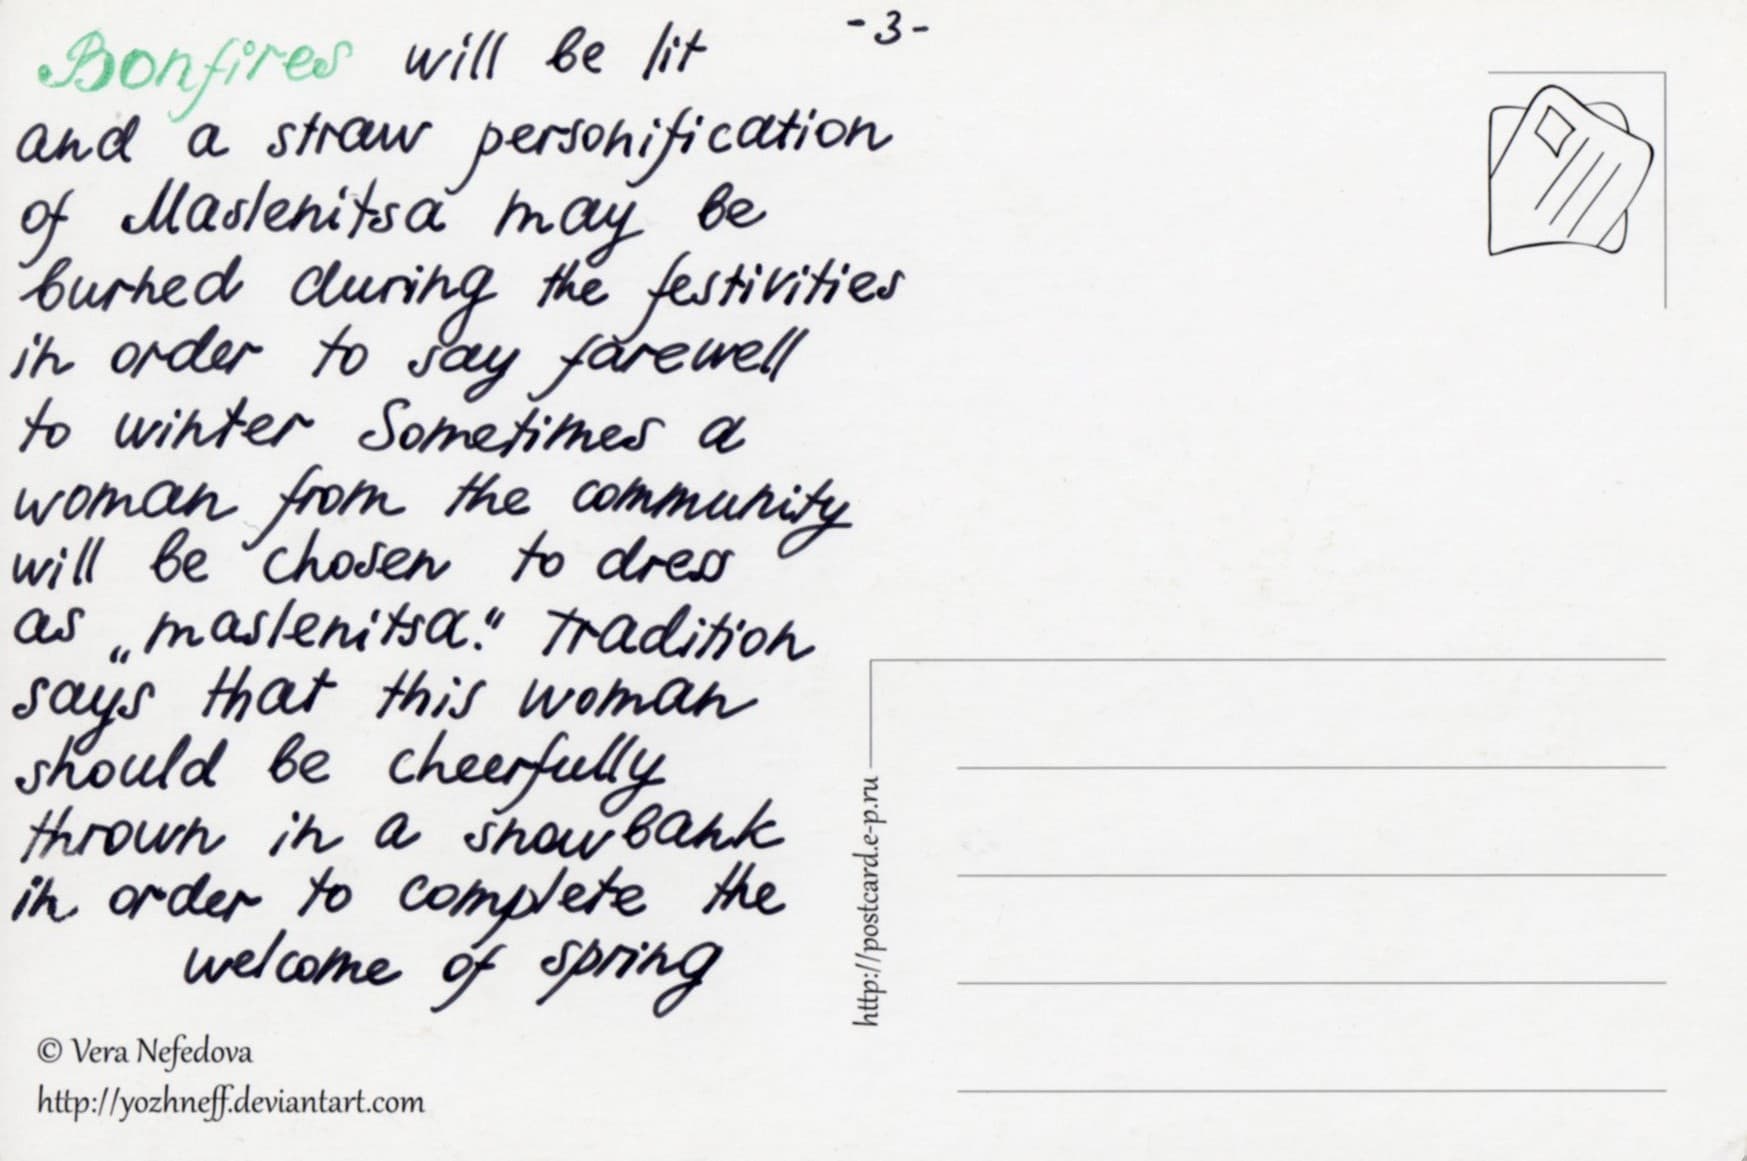 -3-
Bonfires will be lit
and a straw personification
of Maslenitsa may be
burned during the festivities
in order to say farewell
to winter Sometimes a
woman from the community
will be chosen to dress
as „maslenitsa." Tradition
says that this woman
should be cheerfully
thrown in a snowbank
in order to complete the
welcome of spring
© Vera Nefedova
http://yozhneff.deviantart.com
http://postcard.e-p.ru